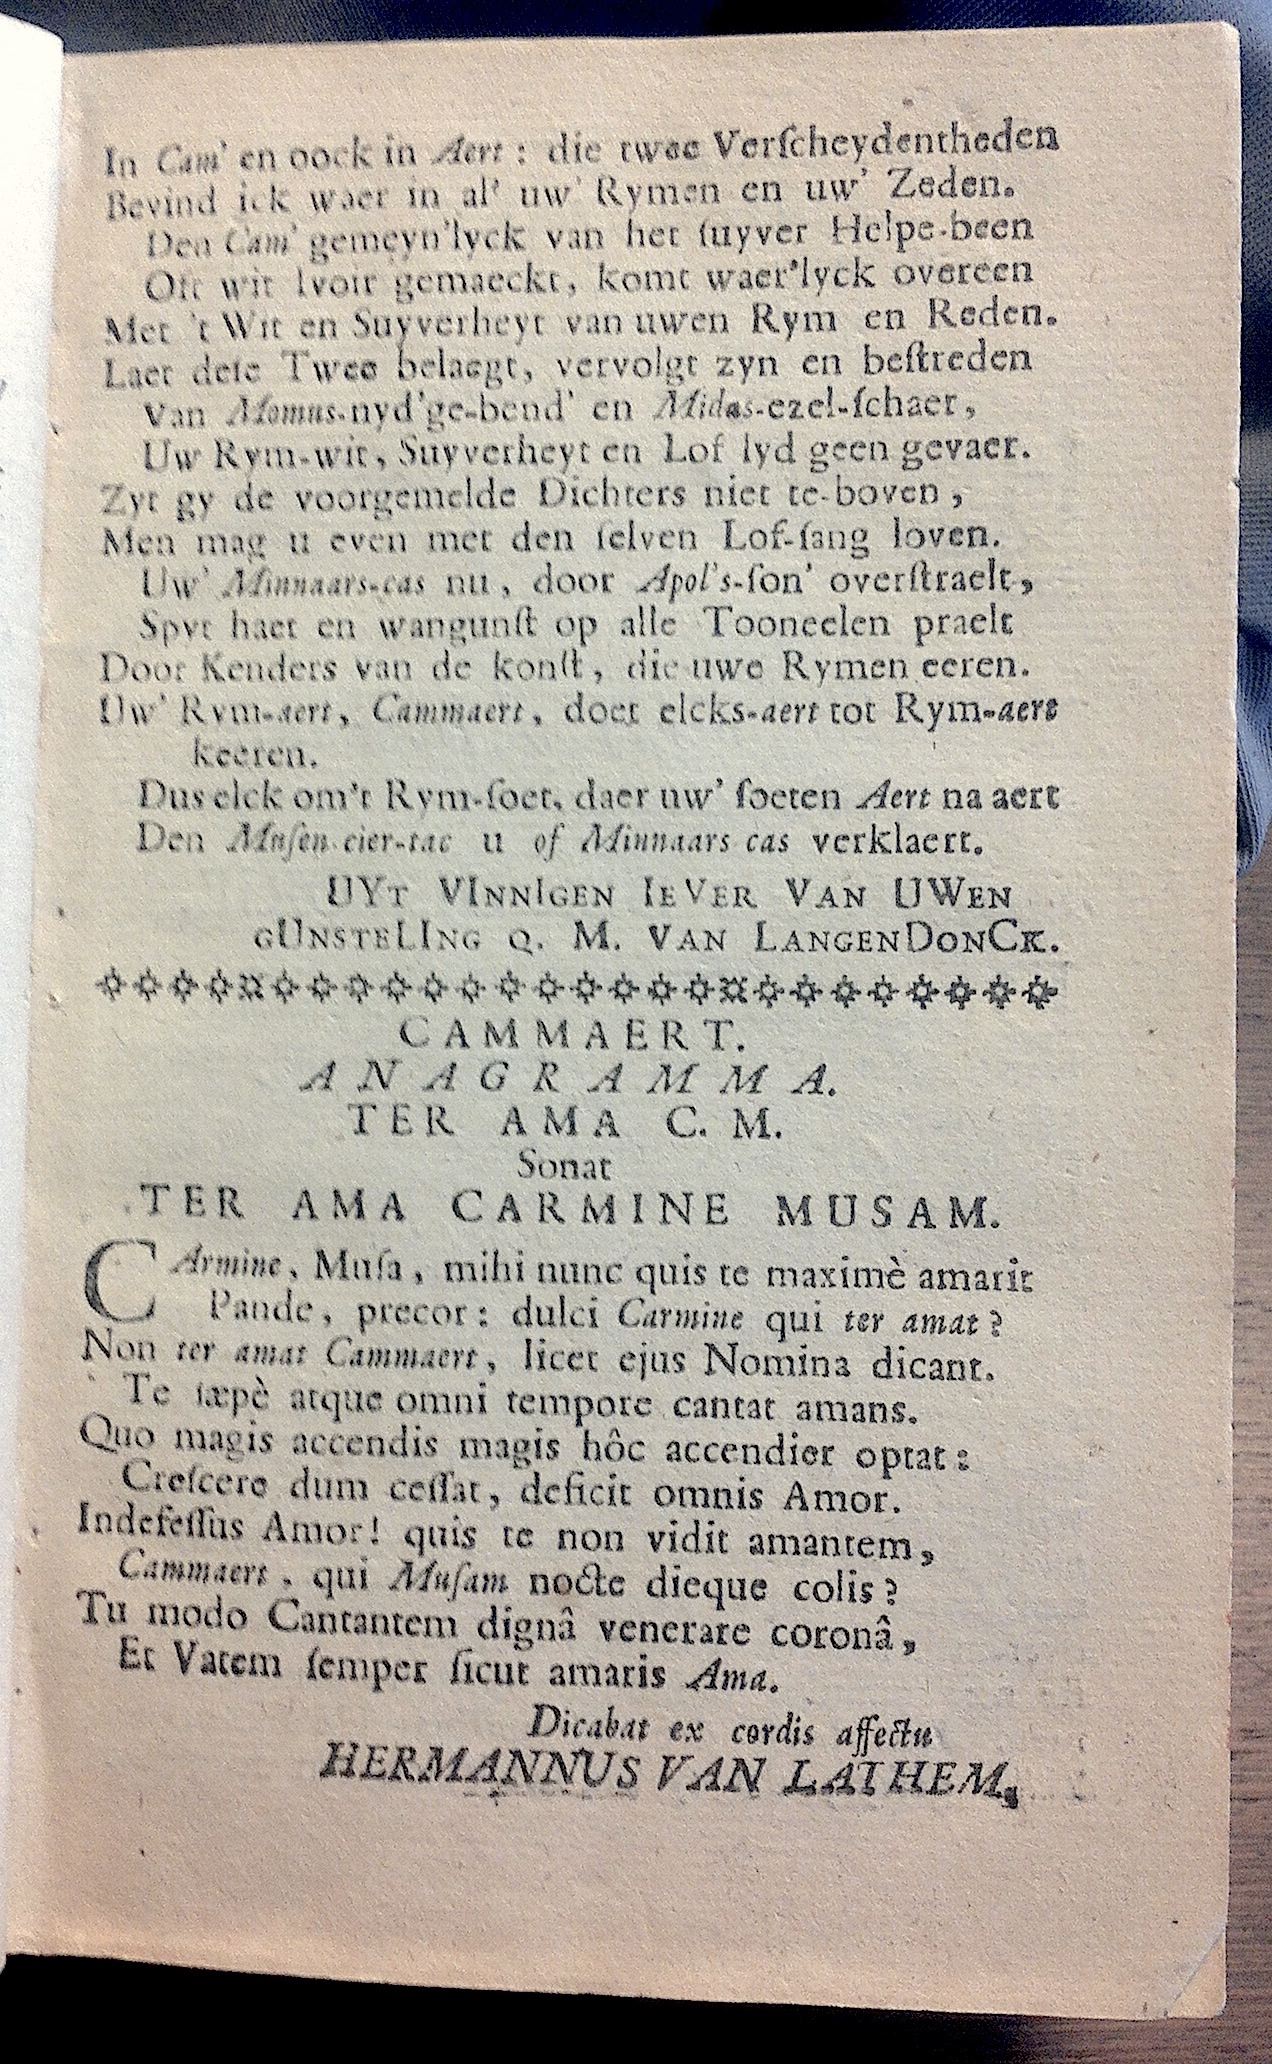 In Cam' en oock in Aert : die twee Verſcheydentheden
Bevind ick waer in al' uw' Rymen en uw' Zeden.
Den Cam' gemeyn'lyck van het ſuyver Helpe-been
Oft wit Ivoir gemaeckt, komt waer'lyck overeen
Met 't Wit en Suyverheyt van uwen Rym en Reden.
Laet deſe Twee belaegt, vervolgt zyn en beſtreden
Van Momus-nyd'ge-bend' en Midas-ezel-ſchaer,
Uw Rym-wit, Suyverheyt en Lof lyd geen gevaer.
Zyt gy de voorgemelde Dichters niet te-boven,
Men mag u even met den ſelven Lof-ſang loven.
Uw' Minnaars-cas nu, door Apol's-ſon' overſtraelt,
Spyt haet en wangunſt op alle Tooneelen praelt
Door Kenders van de konſt, die uwe Rymen eeren.
Uw' Rym-aert, Cammaert, doet elcks-aert tot Rym-aert
keeren.
Dus elck om't Rym-ſoet, daer uw' ſoeten Aert na aert
Den Muſen cier-tac u of Minnaars cas verklaert.
UYT VINNIGEN IEVER VAN UWEN
GUNSTELING Q. M. VAN LANGENDONCK.
CAMMAERT.
ANAGRAMMA.
TER AMA C. M.
Sonat
TER AMA CARMINE MUSAM.
CArmine, Muſa, mihi nunc quis te maximè amarit
Pande, precor : dulci Carmine qui ter amat ?
Non ter amat Cammaert, licet ejus Nomina dicant.
Te ſæpè atque omni tempore cantat amans.
Quo magis accendis magis hôc accendier optat :
Creſcere dum ceſſat, deficit omnis Amor.
Indefeſſus Amor! quis te non vidit amantem,
Cammaert, qui Muſam nocte dieque colis ?
Tu modo Cantantem dignâ venerare coronâ,
Et Vatem ſemper ſicut amaris Ama.
Dicabat ex cordis affectu
HERMANNUS VAN LATHEM.